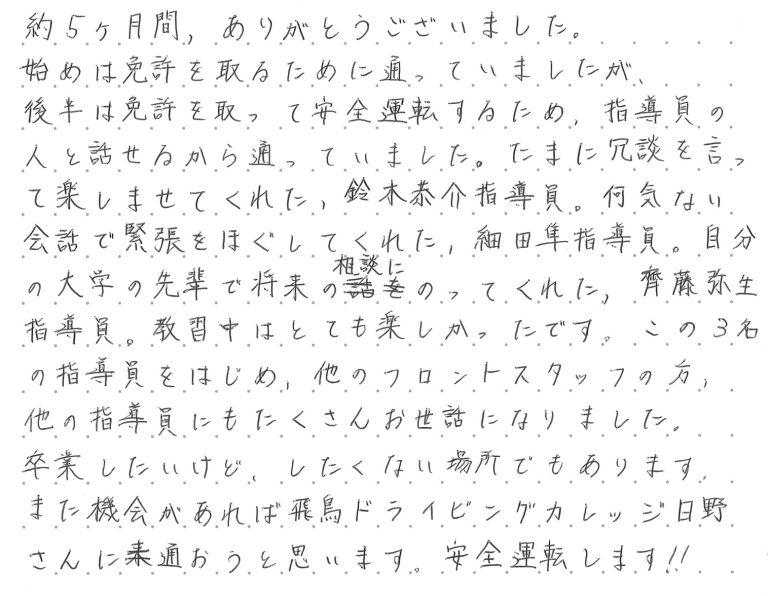 約5ヶ月間，ありがとうございました。
始めは免許を取るために通っていましたが、
後半は免許を取って安全運転するため，指導員の
人と話せるから通っていました。たまに冗談を言っ
て楽しませてくれた，鈴木恭介指導員。何気ない
会話で緊張をほぐしてくれた，細田隼指導員。自分
の大学の先輩で将来の相談にのってくれた，齊藤弥生
指導員。教習中はとても楽しかったです。この3名
の指導員をはじめ，他のフロントスタッフの方，
他の指導員にもたくさんお世話になりました。
卒業したいけど、したくない場所でもあります．
また機会があれば飛鳥ドライビングカレッジ日野
さんに通おうと思います。安全運転します!!